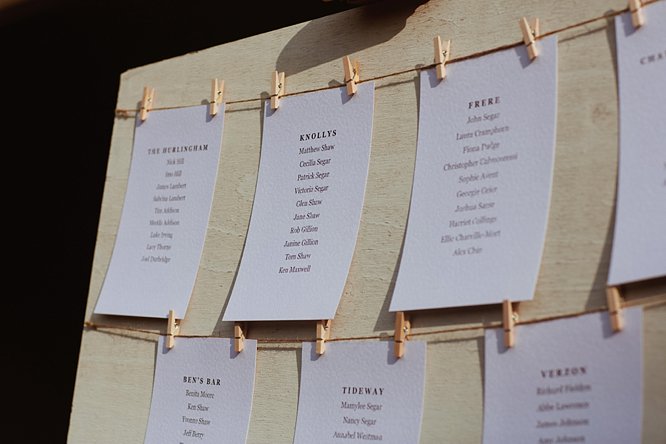 THE HURLINGHAM
Nick Hill
Imo Hill
James Lambert
Sabrina Lambert
Tim Addison
Merida Addison
Luke Irving
Lucy Thorne
Joel Durbridge
KNOLLYS
Matthew Shaw
Cecilia Segar
Patrick Segar
Victoria Segar
Glen Shaw
Jane Shaw
Rob Gillion
Janine Gillion
Tom Shaw
Ken Maxwell
FRERE
John Segar
Laura Cramphorn
Fiona Pudge
Christopher
Sophie Avent
Georgie Grier
Joshua Sarse
Harriet Collings
Ellie Charville-Mort
Alex Chin
CHA
BEN'S BAR
Benita Moore
Ken Shaw
Yvonne Shaw
Jeff Berry
TIDEWAY
Mamylee Segar
Nancy Segar
Annabel Weitman
VERZON
Richard
Abbe Lawrence
James Johnson